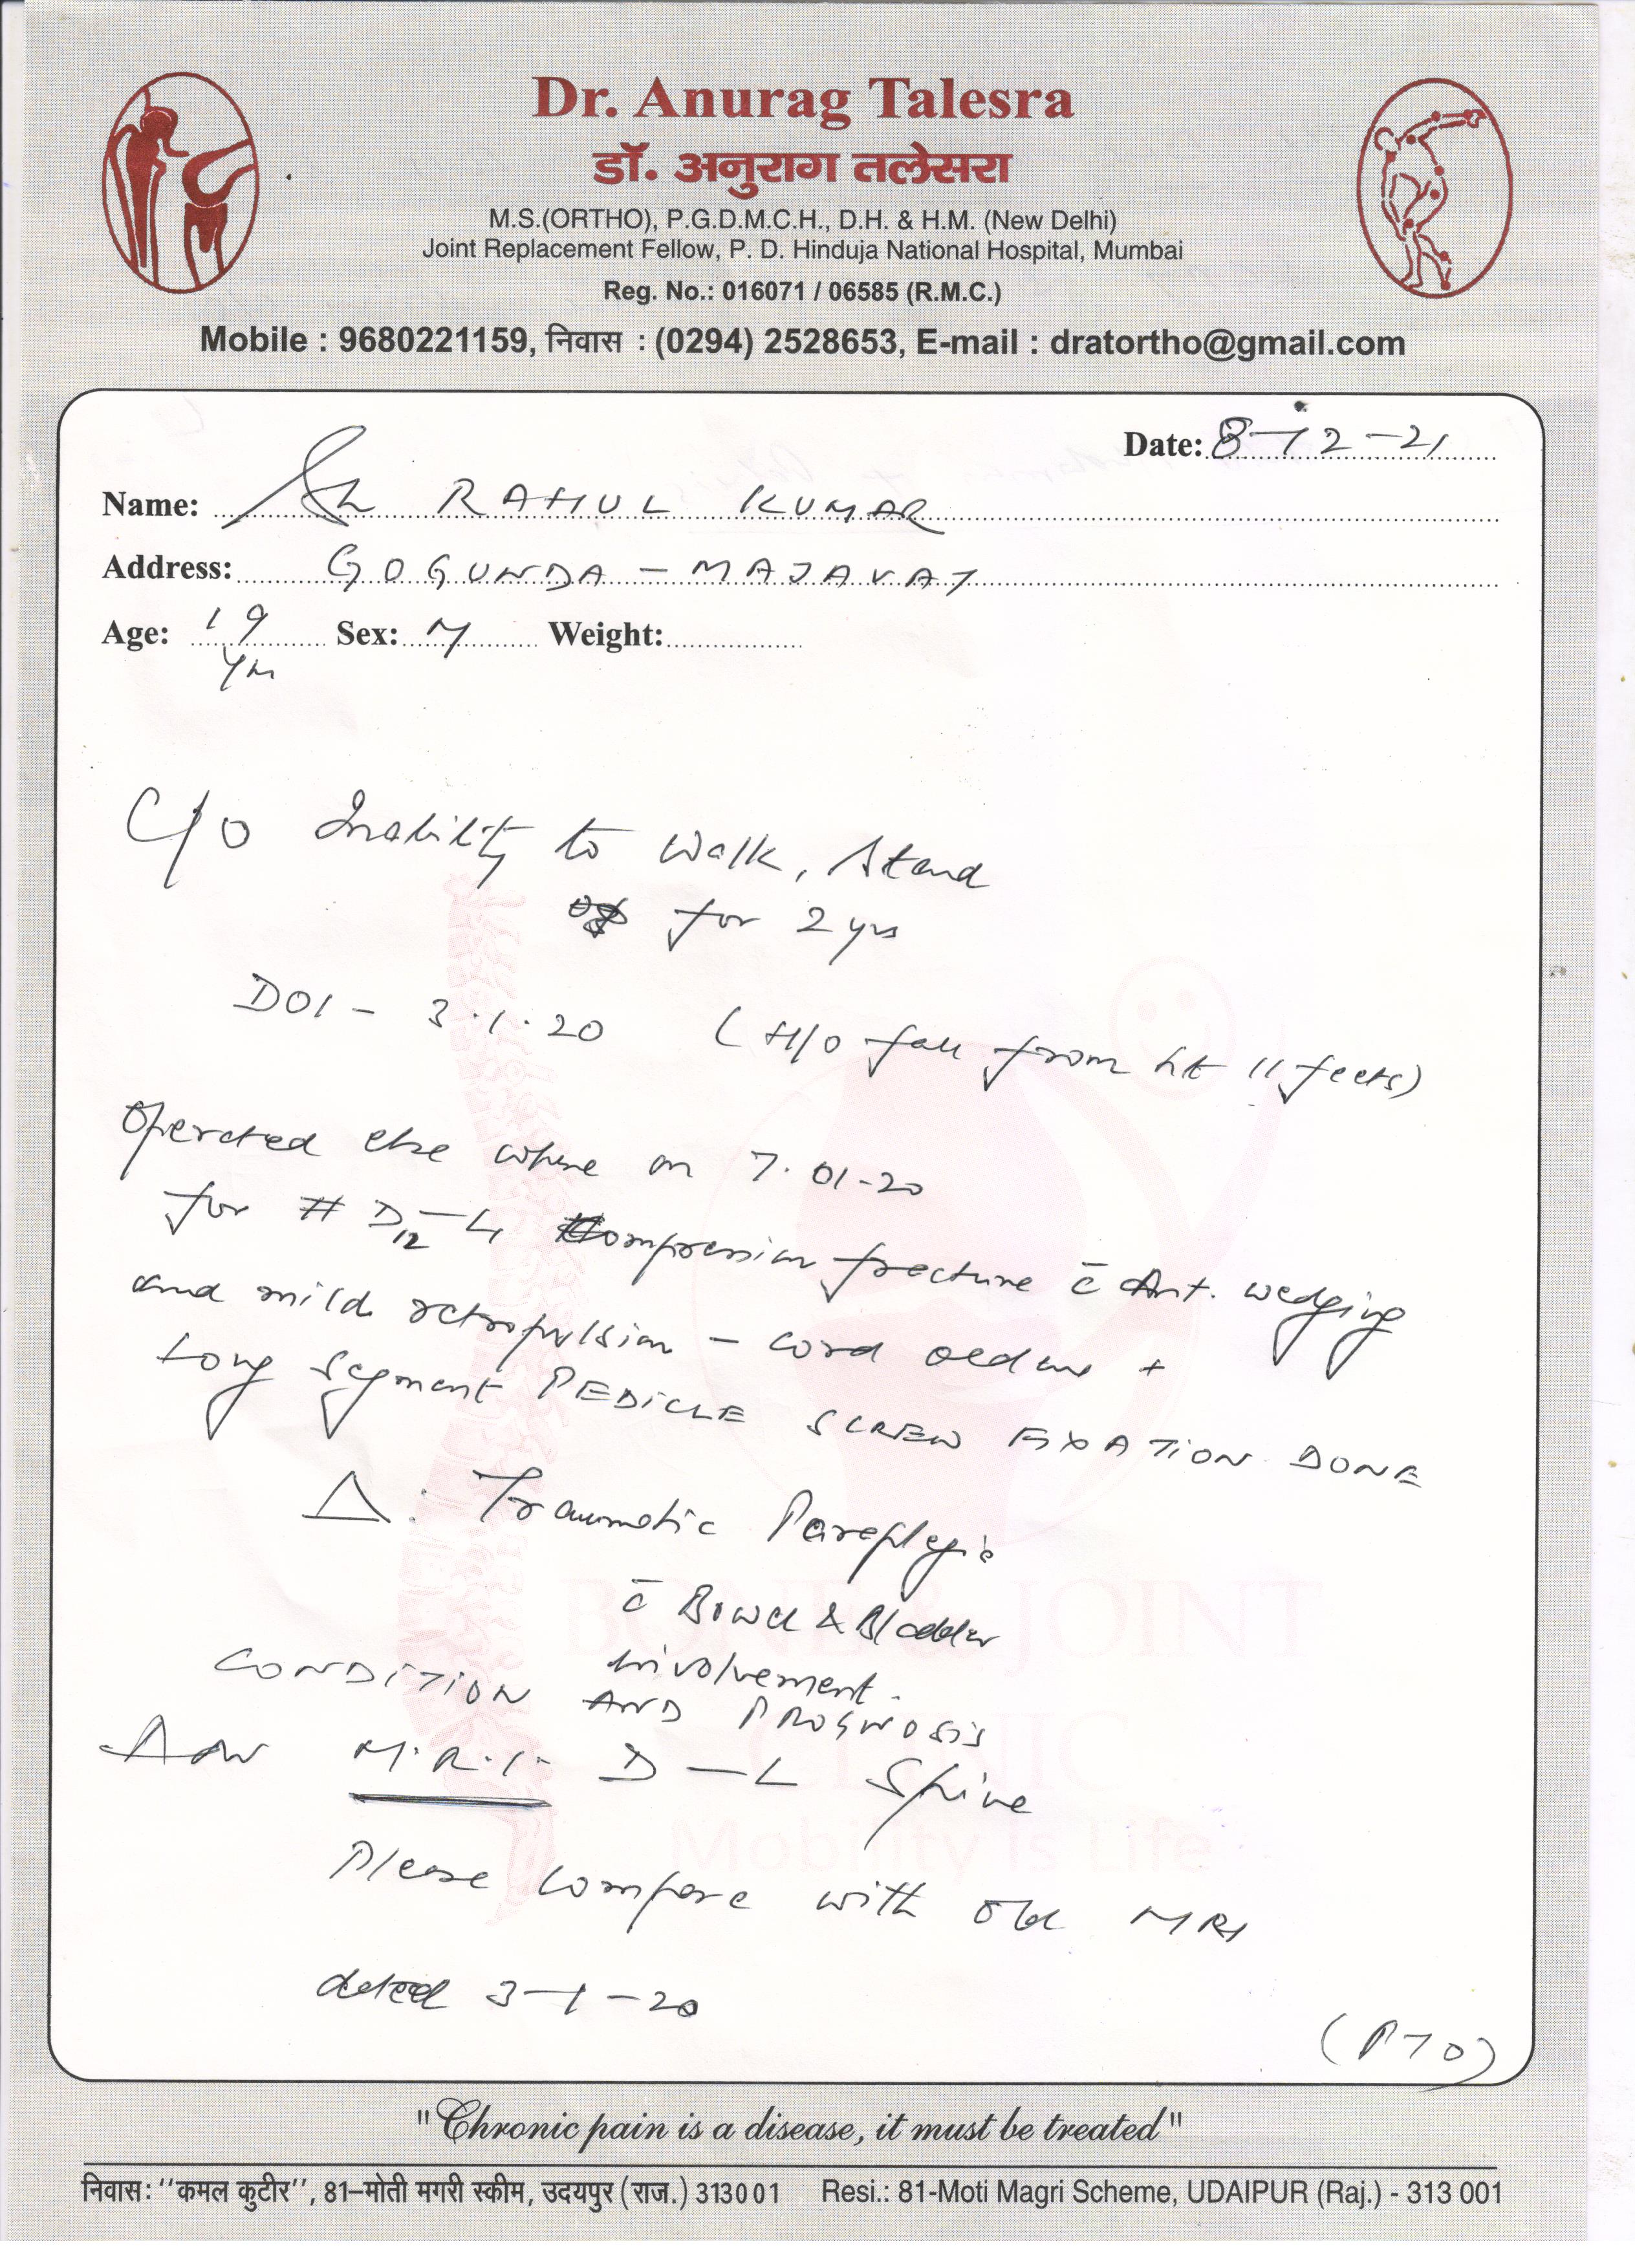 Dr. Anurag Talesra
डॉ. अनुराग तलेसरा
M.S.(ORTHO), P.G.D.M.C.H., D.H. & H.M. (New Delhi)
Joint Replacement Fellow, P. D. Hinduja National Hospital, Mumbai
Reg. No.: 016071 / 06585 (R.M.C.)
Mobile : 9680221159, निवास : (0294) 2528653, E-mail : dratortho@gmail.com
Date: 8-12-21
Name: Sh RAHUL KUMAR
Address: GOGUNDA - MAJAVAT
Age: 19 Sex: M Weight:
Yrs
C/O Inability to Walk, Stand
for 2 yrs
DOI - 3.1.20 (H/O fall from ht 11 feets)
Operated else where on 7.01-20
for # D12-L1 Compression fracture c̄ Ant. wedging
and mild retropulsion - cord oedema +
Long Segment PEDICLE SCREW FIXATION DONE
Δ: Traumatic Paraplegia
c̄ Bowel & Bladder
involvement.
CONDITION AND PROGNOSIS
Adv M.R.I. D-L Spine
Please compare with old MRI
dated 3-1-20
(PTO)
BONE & JOINT
CLINIC
Mobility is Life
"Chronic pain is a disease, it must be treated"
निवास: ''कमल कुटीर'', 81–मोती मगरी स्कीम, उदयपुर (राज.) 313001 Resi.: 81-Moti Magri Scheme, UDAIPUR (Raj.) - 313 001